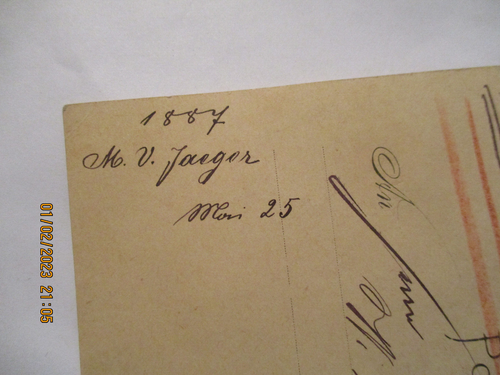 1887
M. V. Jaeger
Mai 25
An
01/02/2023 21:05